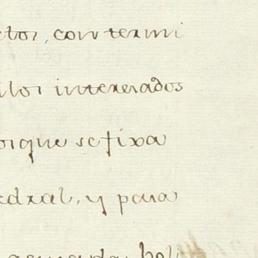 ctos, con termi
llos interesados
orque se fixa
edral, y para